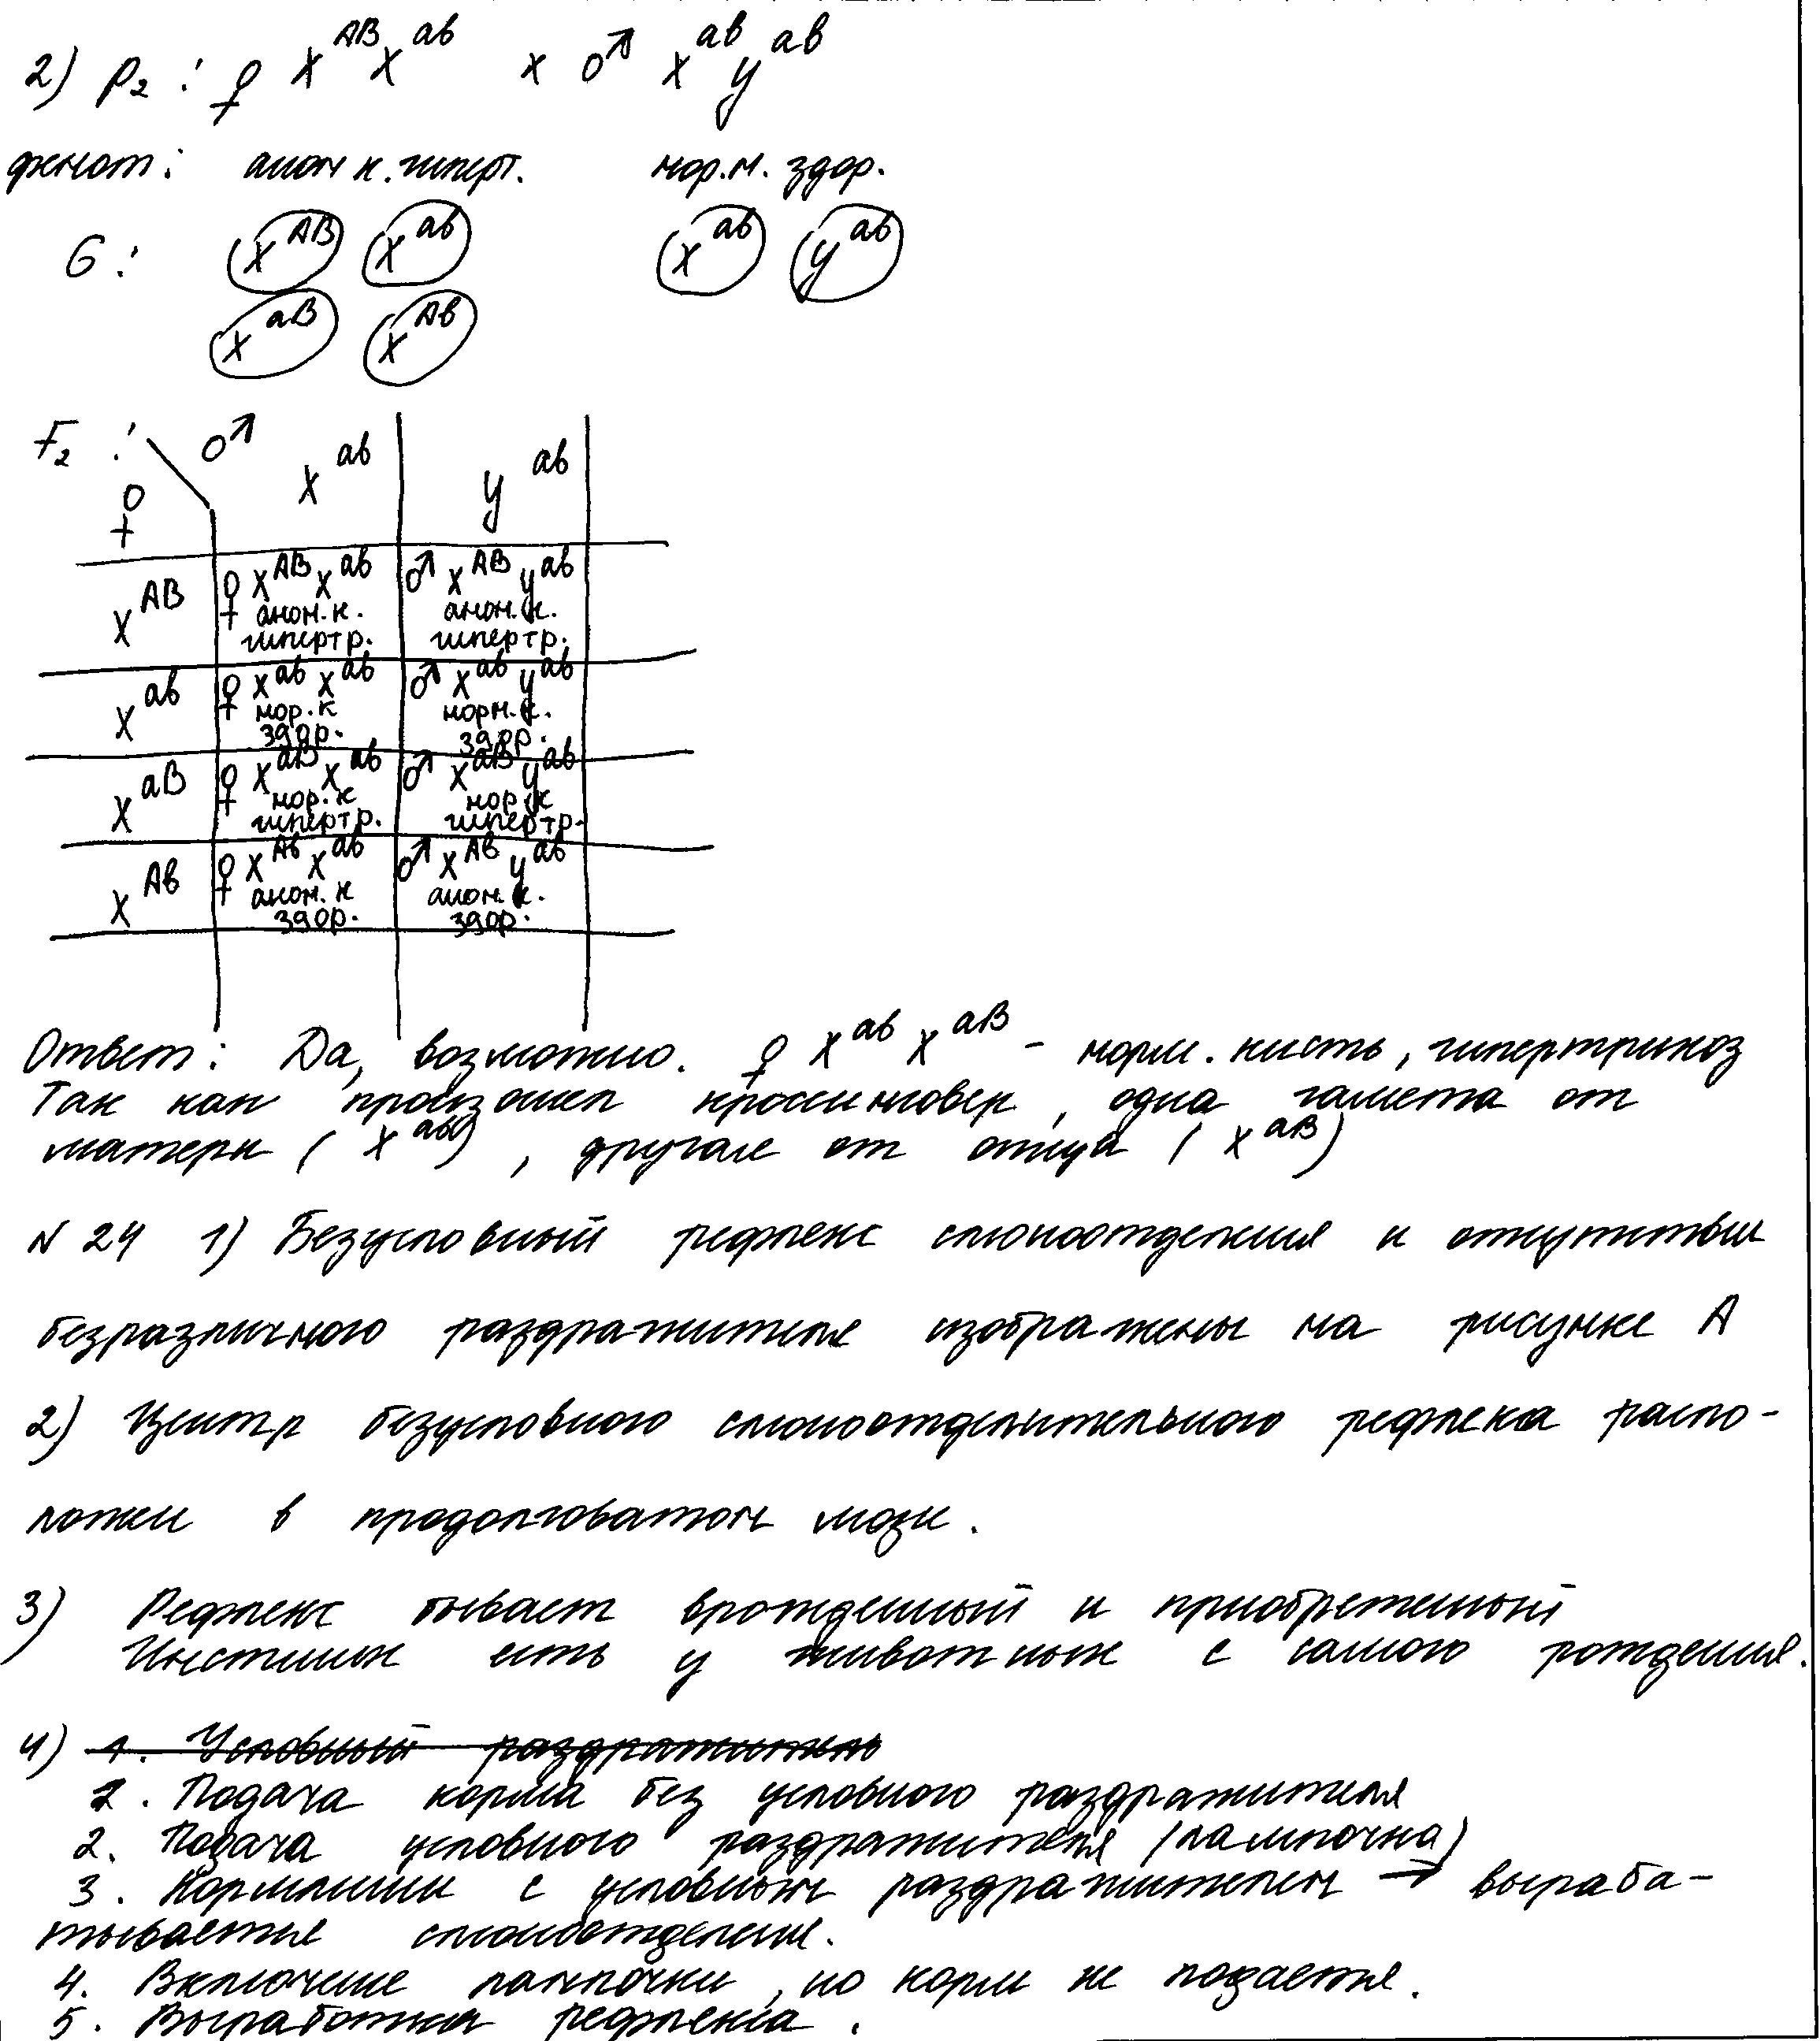 2) P₂ : ♀ X^AB X^ab x ♂ X^ab y^ab
фенот: аном к. гиперт. нор.м. здор.
G : X^AB X^ab X^ab y^ab
X^aB X^Ab
F₂ : ♂ X^ab y^ab
♀
X^AB ♀ X^AB X^ab ♂ X^AB y^ab
аном. к. аном. к.
гипертр. гипертр.
X^ab ♀ X^ab X^ab ♂ X^ab y^ab
нор. к норм. к.
здор. здор.
X^aB ♀ X^aB X^ab ♂ X^aB y^ab
нор. к нор. к
гипертр. гипертр.
X^Ab ♀ X^Ab X^ab ♂ X^Ab y^ab
аном. к аном. к.
здор. здор.
Ответ: Да, возможно. ♀ X^ab X^aB - норм. кисть, гипертрихоз
Так как произошел кроссинговер, одна гамета от
матери ( X^ab ), другая от отца ( X^aB )
N 24 1) Безусловный рефлекс слюноотделения и отсутствии
безразличного раздражителя изображены на рисунке А
2) Центр безусловного слюноотделительного рефлекса распо-
ложен в продолговатом мозге.
3) Рефлекс бывает врожденный и приобретенный
Инстинкт есть у животных с самого рождения.
4) 1. Условный раздражитель
1. Подача корма без условного раздражителя
2. Подача условного раздражителя (лампочка)
3. Кормлении с условным раздражителем → выраба-
тывается слюноотделение.
4. Включение лампочки, но корм не подается.
5. Выработка рефлекса.